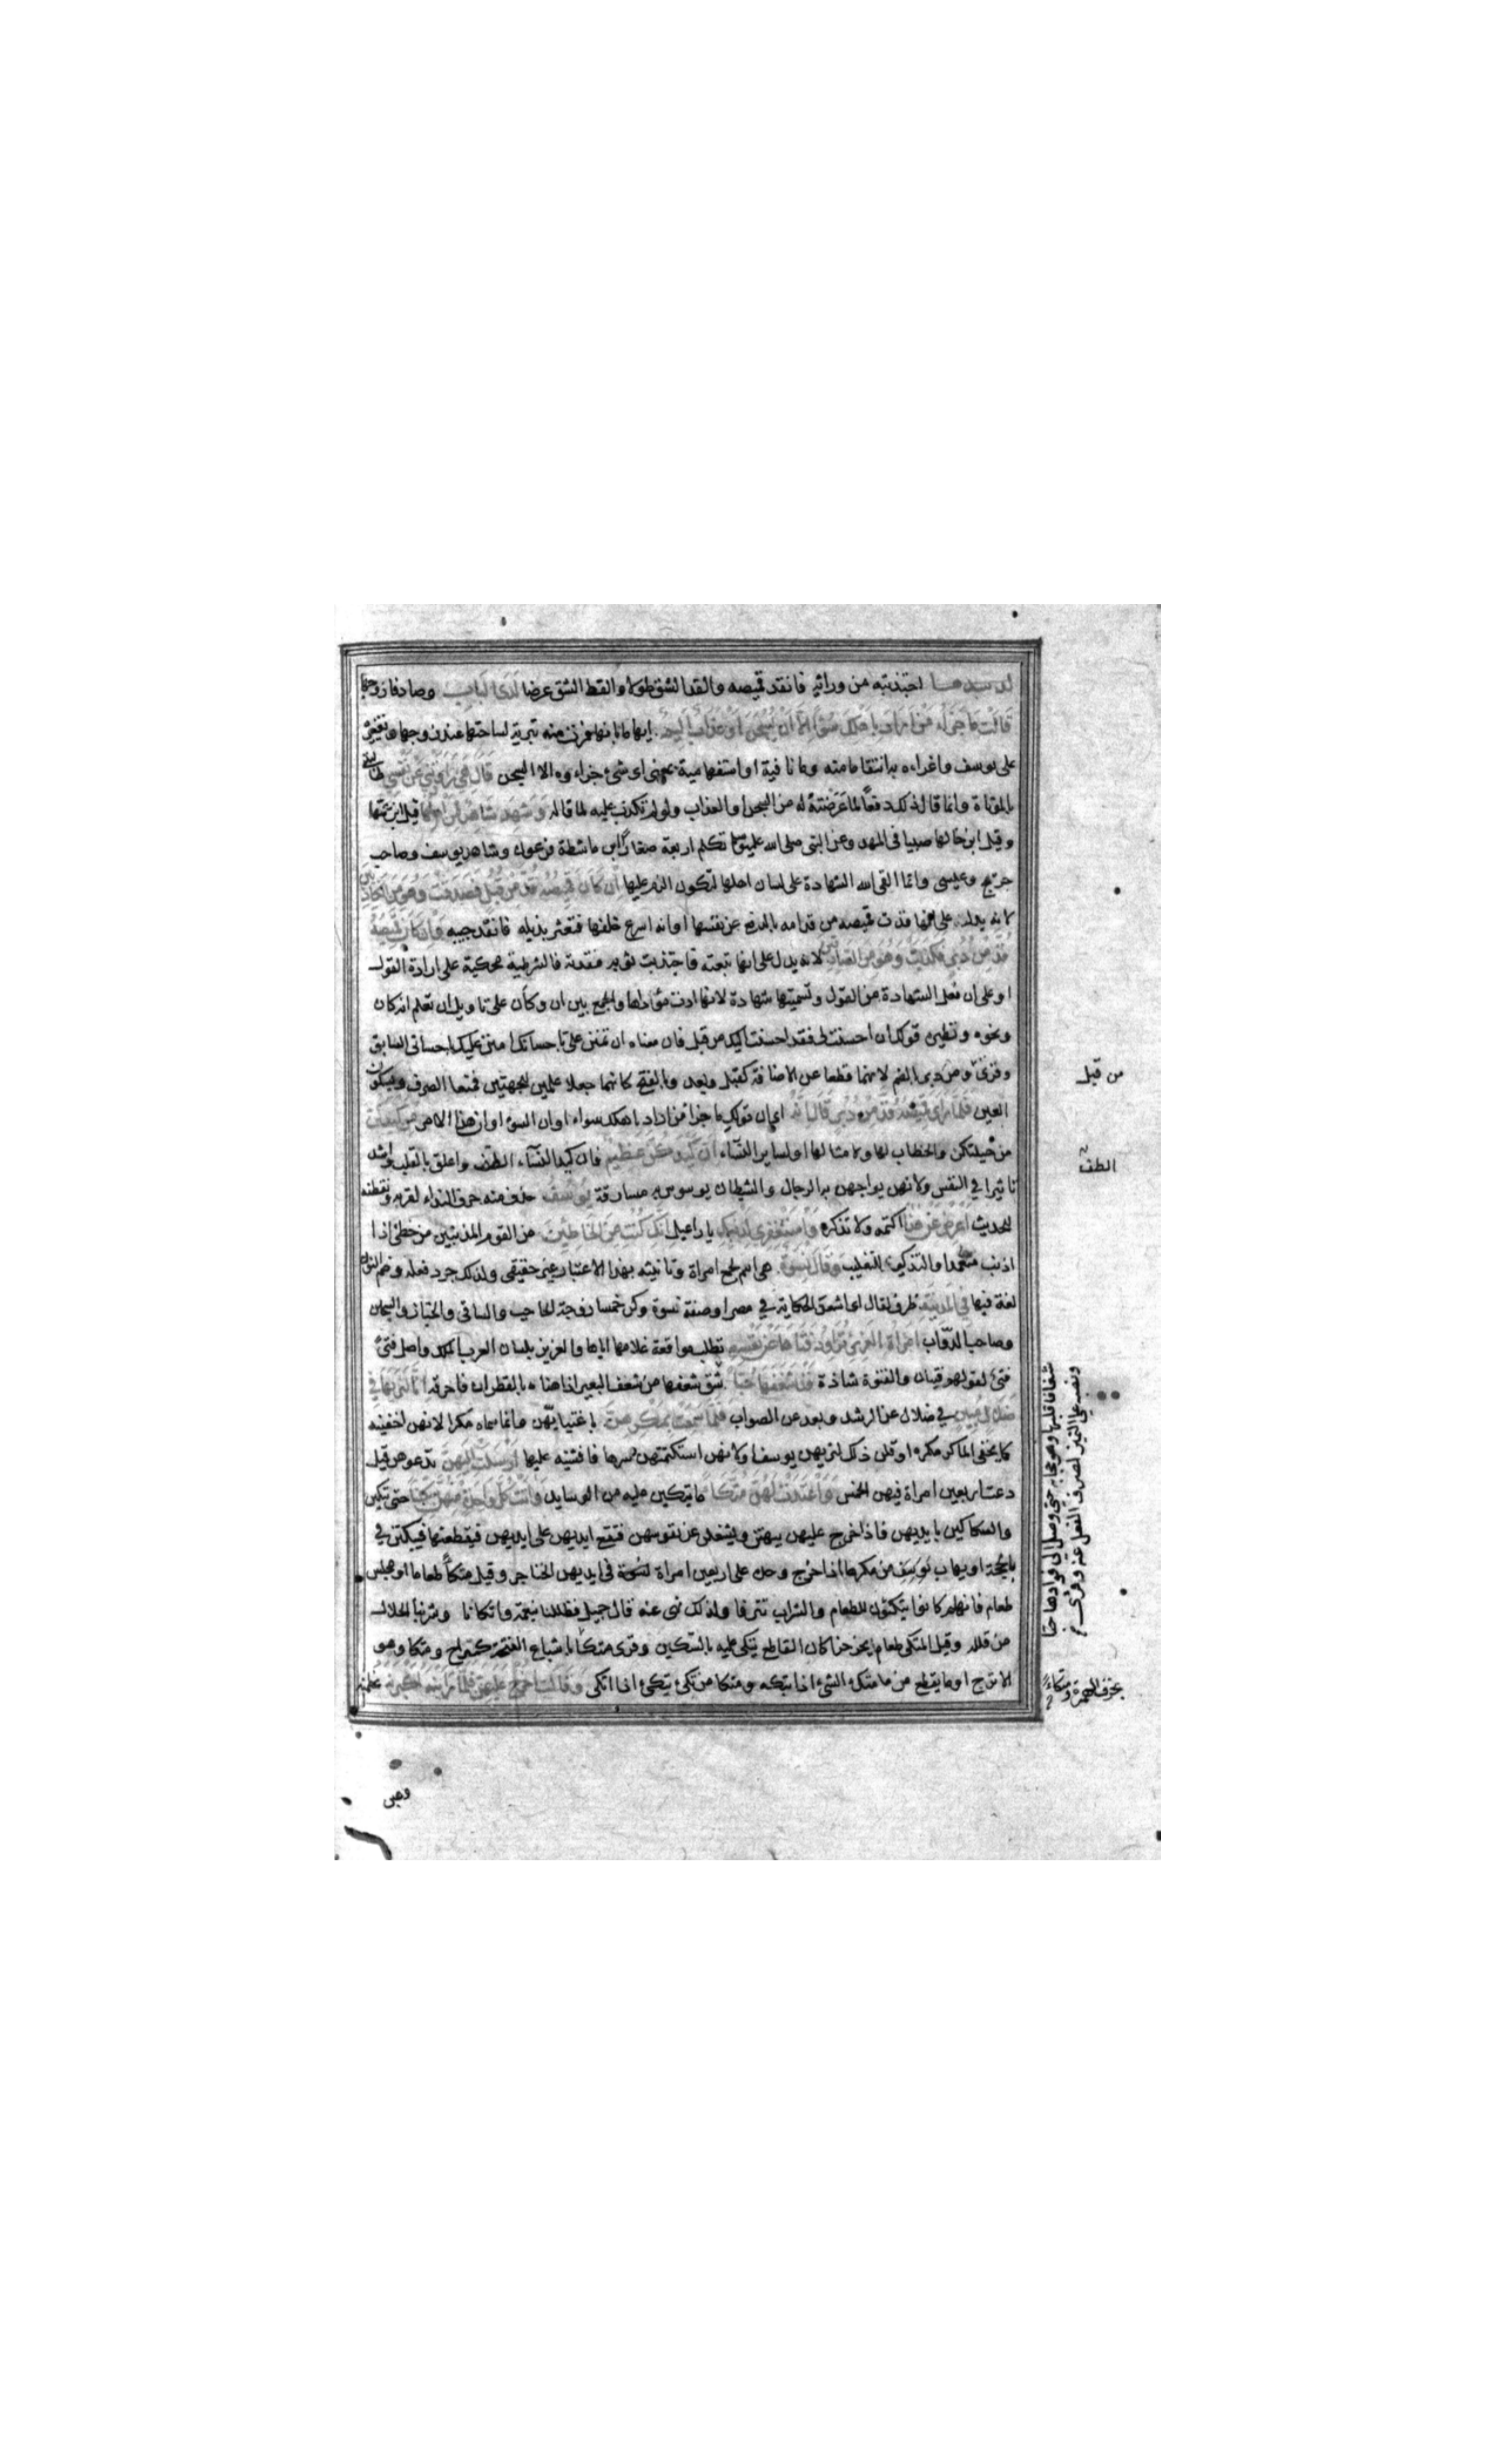 اجتذبته من ورائه فانقد قميصه والقد الشق طولا والقط الشق عرضا لدى الباب وصادفا زوجها
قالت ما جزاء من اراد باهلك سوءا الا ان يسجن او عذاب اليم ايهاما بانها فرت منه تبرية لساحتها عند زوجها وتغييره
على يوسف واغراءه به انتقاما منه وما نافية او استفهامية بمعنى اى شئ جزاءه الا السجن قال هى راودتنى عن نفسى طالبتنى
بالمؤاتاة وانما قال ذلك دفعا لما عرضته له من السجن او العذاب ولو لم تكذب عليه لما قاله وشهد شاهد من اهلها قيل ابن عمها
وقيل ابن خالها صبيا فى المهد وعن النبى صلى الله عليه وسلم تكلم اربعة صغارا ابن ماشطة فرعون وشاهد يوسف وصاحب
جريج وعيسى وانما القى الله الشهادة على لسان اهلها لتكون الزم عليها ان كان قميصه قد من قبل فصدقت وهو من الكاذبين
لانه يدل على انها قدت قميصه من قدامه بالدفع عن نفسها او انه اسرع خلفها فتعثر بذيله فانقد جيبه وان كان قميصه
قد من دبر فكذبت وهو من الصادقين لانه يدل على انها تبعته فاجتذبت ثوبه فقدته والشرطية محكية على ارادة القول
او على ان فعل الشهادة من القول وتسميتها شهادة لانها ادت مؤداها والجمع بين ان وكان على تاويل ان تعلم انه كان
ونحوه ونظيره قولك ان احسنت الى فقد احسنت اليك من قبل فان معناه ان تمنن على باحسانك امنن عليك باحسانى السابق
وقرئ ومن دبر بالضم لانهما قطعا عن الاضافة كقبل وبعد وبالفتح كانهما جعلا علمين للجهتين فمنعا الصرف وبسكون
العين فلما راى قميصه قد من دبر قال انه اى ان قولك ما جزاء من اراد باهلك سوءا او ان السوء او ان هذا الامر من كيدكن
من حيلتكن والخطاب لها ولامثالها او لساير النساء ان كيدكن عظيم فان كيد النساء الطف واعلق بالقلب واشد
تاثيرا فى النفس ولانهن يواجهن به الرجال والشيطان يوسوس به مسارقة يوسف حذف منه حرف النداء لقربه وتفطنه
للحديث اعرض عن هذا اكتمه ولا تذكره واستغفرى لذنبك يا راعيل انك كنت من الخاطئين من القوم المذنبين من خطئ اذا
اذنب متعمدا والتذكير للتغليب وقال نسوة هى اسم لجمع امراة وتانيثه بهذا الاعتبار غير حقيقى ولذلك جرد فعله وضم النون
لغة فيها فى المدينة ظرف لقال اى اشعن الحكاية فى مصر او صفة نسوة وكن خمسا زوجة الحاجب والساقى والخباز والسجان
وصاحب الدواب امراة العزيز تراود فتاها عن نفسه تطلب مواقعة غلامها اياها والعزيز بلسان العرب الملك واصل فتى
فتى لقولهم فتيان والفتوة شاذة قد شغفها حبا شق شغفها من شغف البعير اذا هناه بالقطران فاحرقه انا لنراها فى
ضلال مبين فى ضلال عن الرشد وبعد عن الصواب فلما سمعت بمكرهن باغتيابهن وانما سماه مكرا لانهن اخفينه
كما يخفى الماكر مكره او قلن ذلك لتريهن يوسف او لانهن استكتمتهن سرها فافشينه عليها ارسلت اليهن تدعوهن قيل
دعت اربعين امراة فيهن الخمس واعتدت لهن متكا ما يتكين عليه من الوسايد واتت كل واحدة منهن سكينا حتى يتكين
والسكاكين بايديهن فاذا خرج عليهن يبهتن ويشغلن عن نفوسهن فتقع ايديهن على ايديهن فيقطعنها فيبكتن
بالحجة او يهاب يوسف من مكرها اذا خرج وحده على اربعين امراة فى ايديهن الخناجر وقيل متكأ طعاما او مجلس
طعام فانهم كانوا يتكئون للطعام والشراب تترفا ولذلك نهى عنه قال جميل فظللنا بنعمة واتكانا وشربنا الحلال
من قلله وقيل المتكى طعام يحز حزا كان القاطع يتكى عليه بالسكين وقرى متكا باشباع الفتحة كمنتزاح ومتكا وهو
الاترج او ما يقطع من متك الشئ اذا بتكه ومتكا من تكئ يتكئ اذا اتكى وقالت اخرج عليهن فلما راينه اكبرنه عظمنه
من قبل
الطف
شغاف قلبها وهو حجابه حتى وصل الى فؤادها حبا
ونصبه على التميز لصرف الفعل عنه وقرى
بحذف الهمزة ومتكاء
وهبن